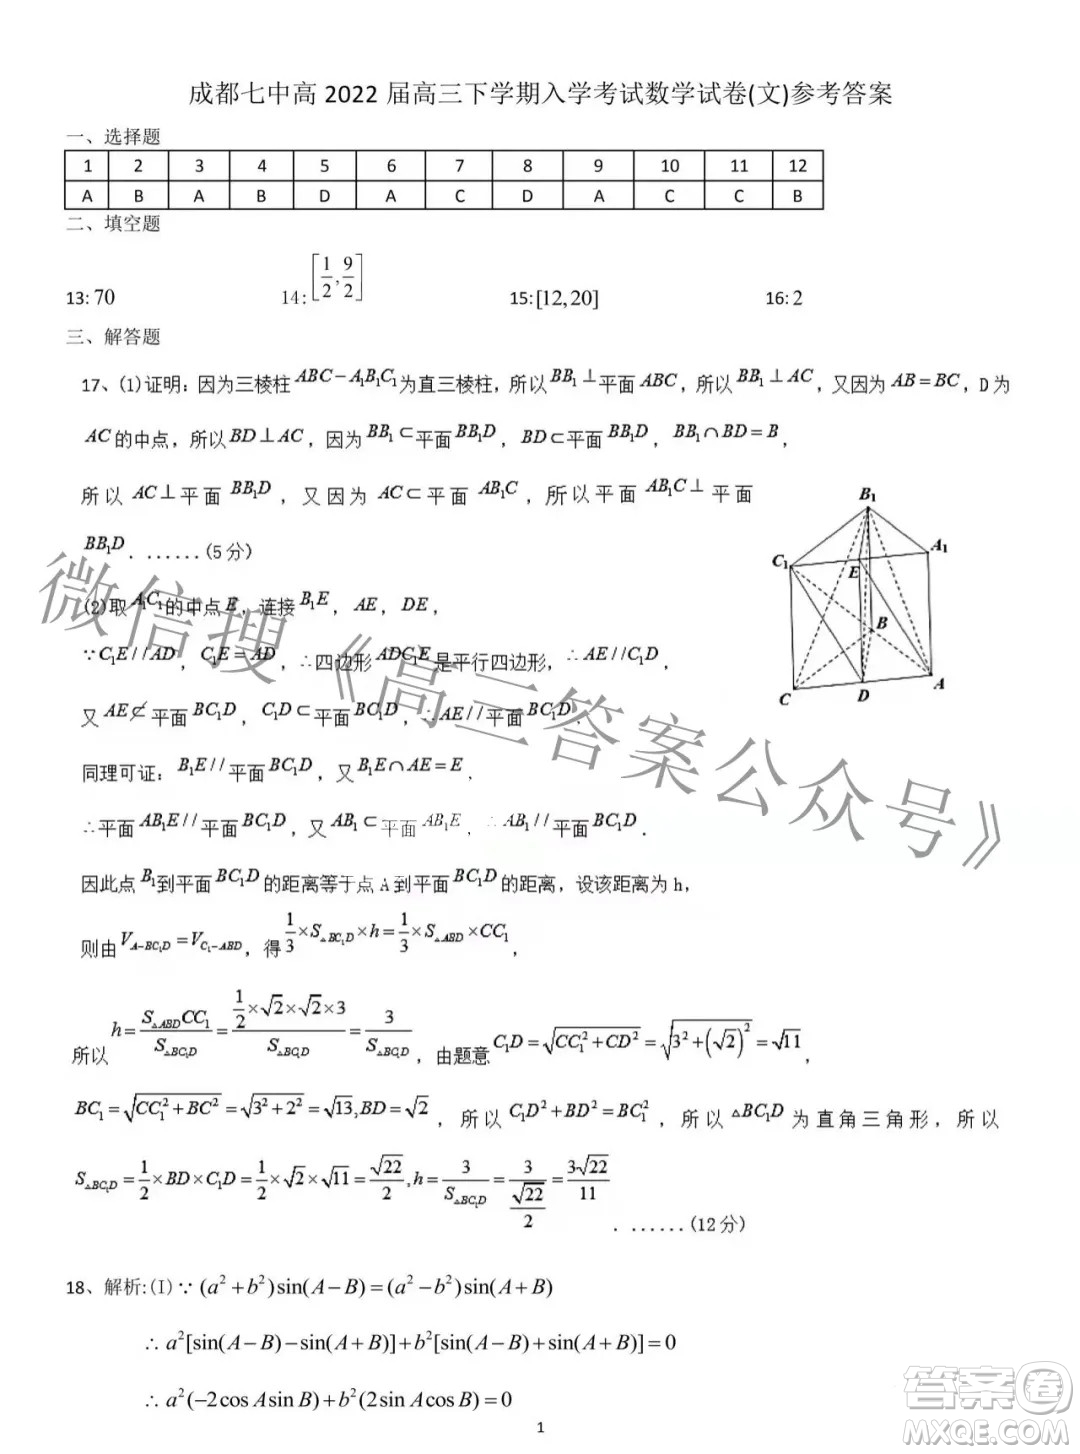 成都七中高 2022 届高三下学期入学考试数学试卷(文)参考答案
一、选择题
1 2 3 4 5 6 7 8 9 10 11 12
A B A B D A C D A C C B
二、填空题
13: 70 14: [1/2, 9/2] 15: [12,20] 16: 2
三、解答题
17、(1)证明: 因为三棱柱 ABC－A₁B₁C₁ 为直三棱柱，所以 BB₁⊥平面 ABC，所以 BB₁⊥AC，又因为 AB＝BC，D 为
AC 的中点，所以 BD⊥AC，因为 BB₁⊂平面 BB₁D，BD⊂平面 BB₁D，BB₁∩BD＝B，
所以 AC⊥平面 BB₁D，又因为 AC⊂平面 AB₁C，所以平面 AB₁C⊥平面
BB₁D．......(5 分)
(2)取 A₁C₁ 的中点 E，连接 B₁E，AE，DE，
∵C₁E//AD，C₁E＝AD，∴四边形 ADC₁E 是平行四边形，∴AE//C₁D，
又 AE⊄平面 BC₁D，C₁D⊂平面 BC₁D，∴AE//平面 BC₁D．
同理可证：B₁E//平面 BC₁D，又 B₁E∩AE＝E．
∴平面 AB₁E//平面 BC₁D，又 AB₁⊂平面 AB₁E，∴AB₁//平面 BC₁D．
因此点 B₁到平面 BC₁D 的距离等于点 A 到平面 BC₁D 的距离，设该距离为 h，
则由 V_{A－BC₁D}＝V_{C₁－ABD}，得 1/3×S_{△BC₁D}×h＝1/3×S_{△ABD}×CC₁，
所以 h＝S_{△ABD}CC₁/S_{△BC₁D}＝(1/2×√2×√2×3)/S_{△BC₁D}＝3/S_{△BC₁D}，由题意 C₁D＝√(CC₁²＋CD²)＝√(3²＋(√2)²)＝√11，
BC₁＝√(CC₁²＋BC²)＝√(3²＋2²)＝√13,BD＝√2，所以 C₁D²＋BD²＝BC₁²，所以 △BC₁D 为直角三角形，所以
S_{△BC₁D}＝1/2×BD×C₁D＝1/2×√2×√11＝√22/2,h＝3/S_{△BC₁D}＝3/(√22/2)＝3√22/11．......(12 分)
B₁
A₁
C₁
E
B
C
D
A
18、解析:(I)∵(a²+b²)sin(A−B)=(a²−b²)sin(A+B)
∴a²[sin(A−B)−sin(A+B)]+b²[sin(A−B)+sin(A+B)]=0
∴a²(−2cos Asin B)+b²(2sin Acos B)=0
1
微信搜《高三答案公众号》
答案卷
MXQE.COM